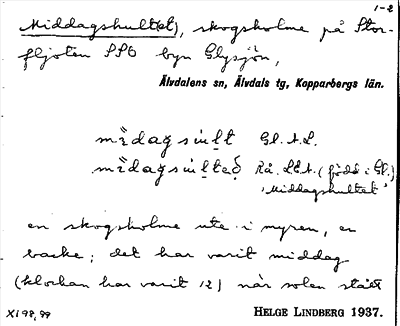 1-2
Middagshultet), skogsholme på Stor-
fljoten SSO byn Glysjön,
Älvdalens sn, Älvdals tg, Kopparbergs län.
Gl. A.L.
Rå. L.E.A. (född i Gl.)
'Middagshultet'
en skogsholme ute i myren, en
backe; det har varit middag
(klockan har varit 12) när solen stått
XI 98, 99
HELGE LINDBERG 1937.